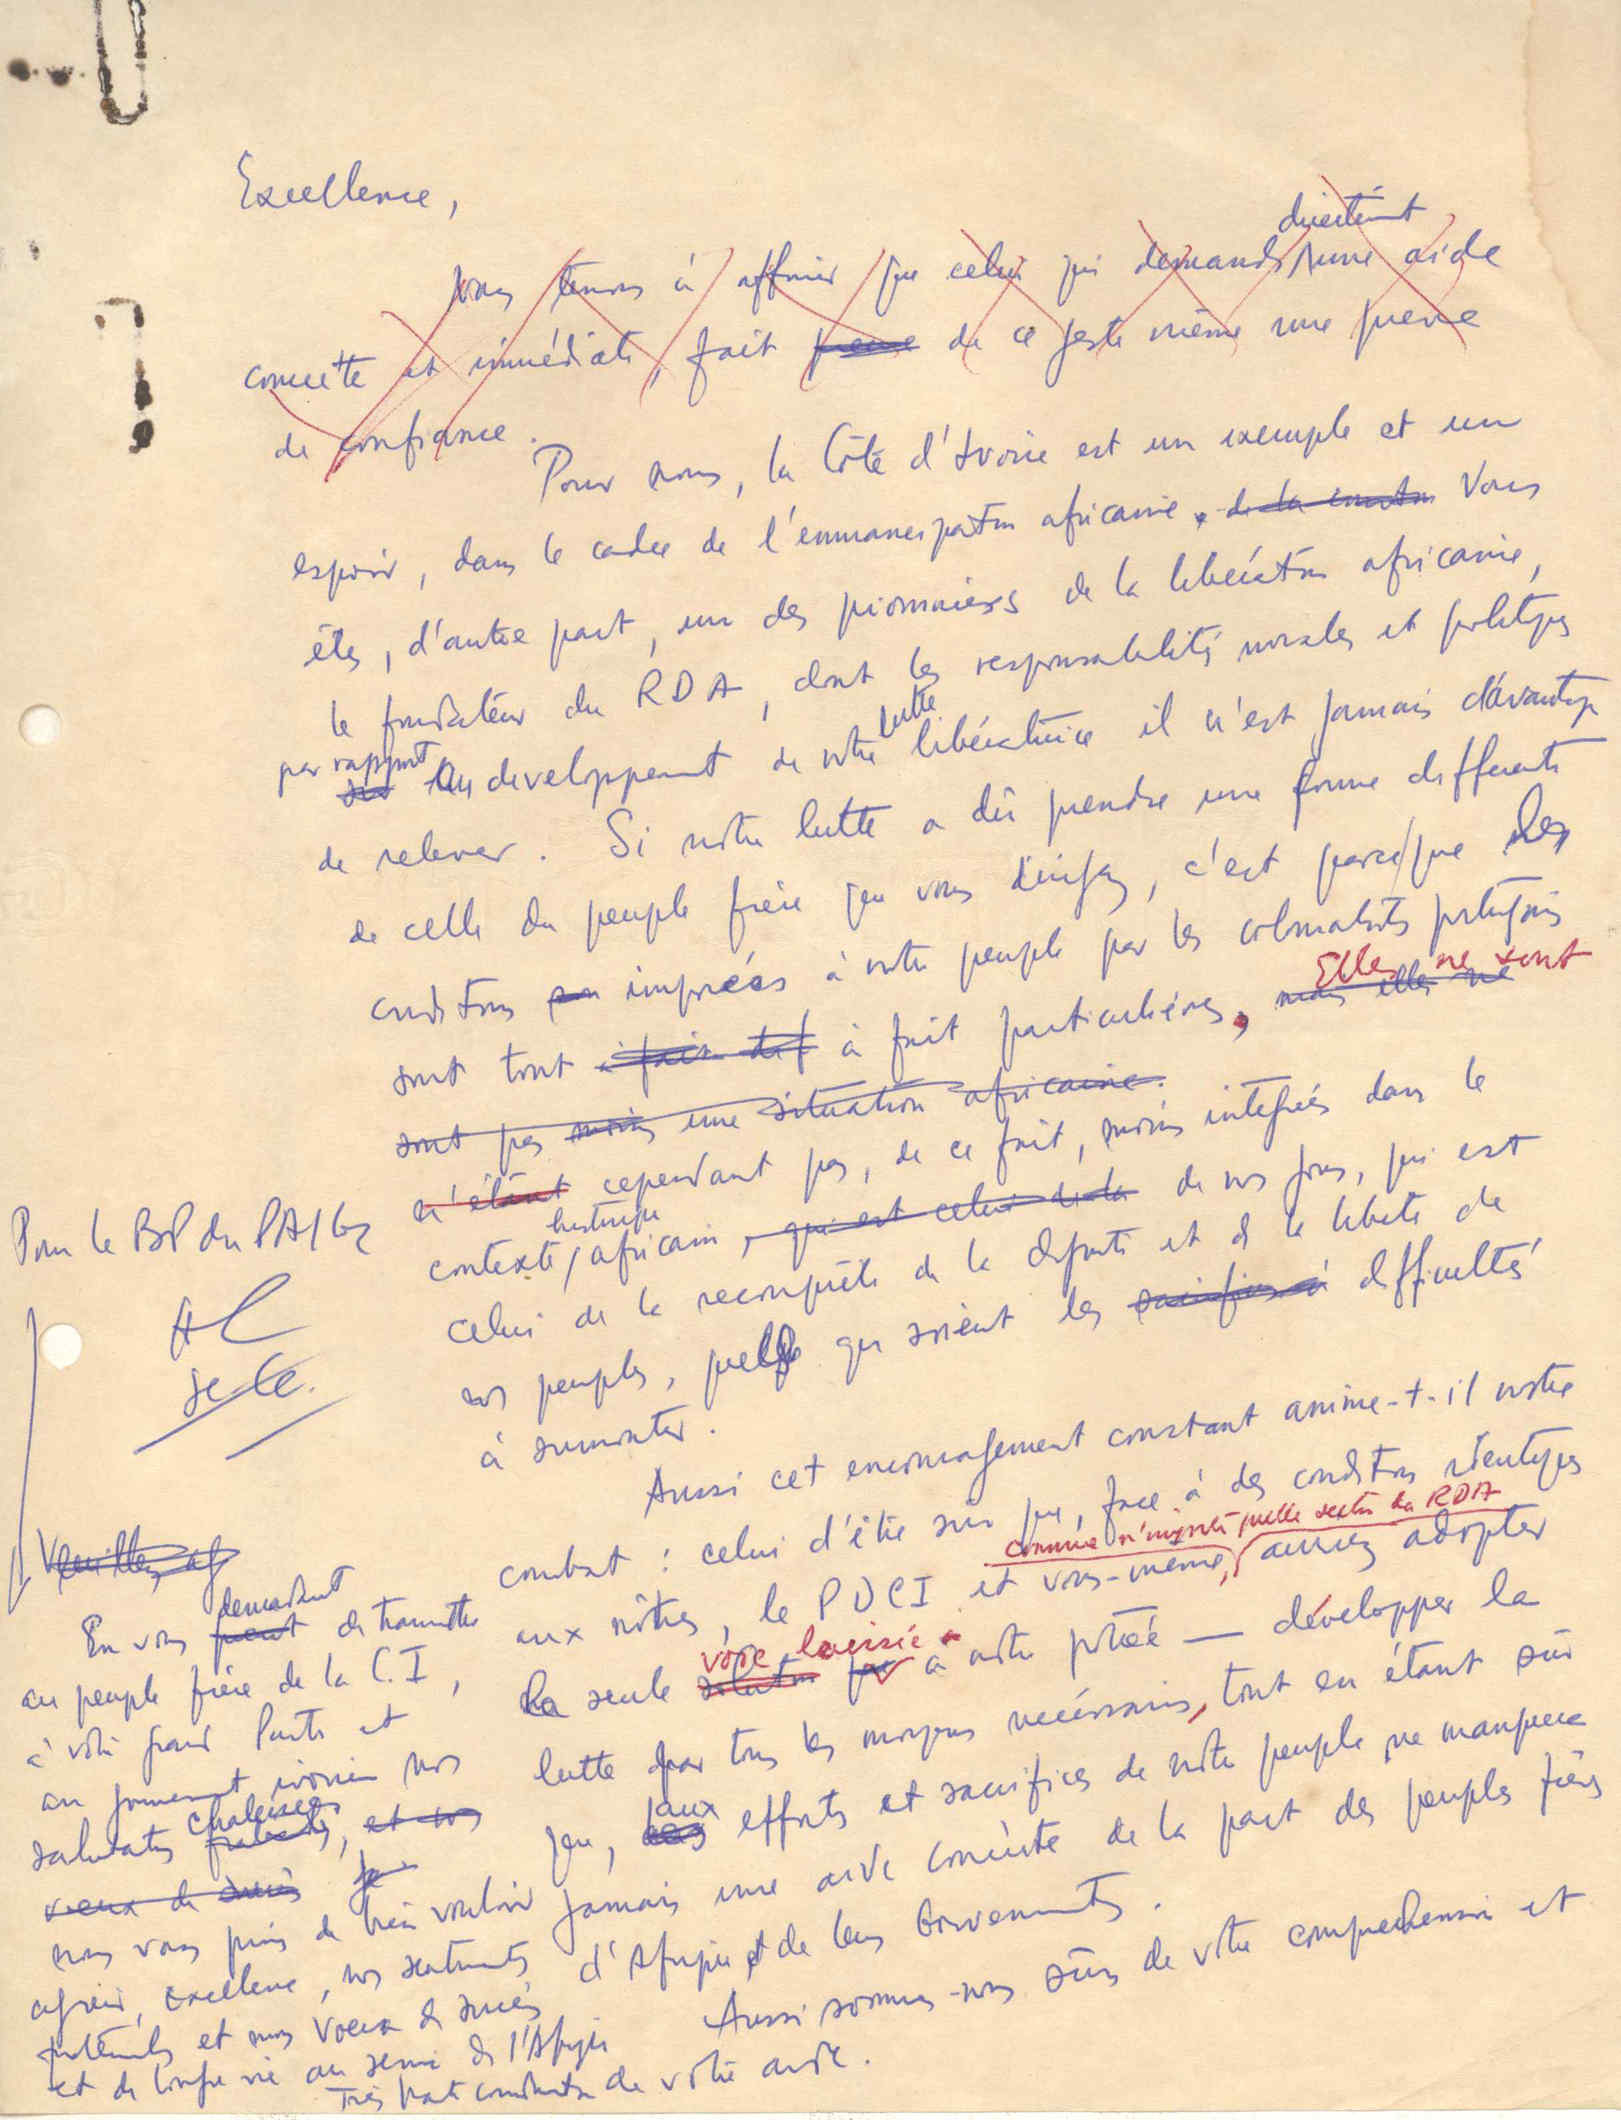 Excellence,
directement
Nous tenons à affirmer que celui qui demande une aide
concrète et immédiate, fait preuve de ce geste même une preuve
de confiance.
Pour nous, la Côte d'Ivoire est un exemple et un
espoir, dans le cadre de l'enmancipation africaine, de la Vous
êtes, d'autre part, un des pionnaiers de la libération africaine,
le fondateur du RDA, dont les responsabilités morales et politiques
par rapport lutte
sur au developpement de notre libératrice il n'est jamais davantage
de relever. Si notre lutte a dû prendre une forme differente
de celle du peuple frère que vous dirigez, c'est parce que les
conditions imposées à notre peuple par les colonialistes portugais
Elles ne sont
sont tout à fait dif à fait particulières, mais elles ne
sont pas moins une situation africaine.
n'étant cependant pas, de ce fait, moins integrées dans le
historique
contexte africain, qui est celui de la de nos jours, qui est
celui de la reconquête de la dignité et de la liberté de
nos peuples, quelles que soient les sacrifices à difficultés
à surmonter.
Aussi cet encouragement constant anime-t-il notre
combat : celui d'être sûr que, face à des conditions identiques
comme n'importe quelle section du RDA
aux nôtres, le PDCI et vous-même, auriez adopter
voie laissée
la seule solution que à notre portée — développer la
lutte par tous les moyens nécéssaires, tout en étant sûr
aux
que, ces efforts et sacrifices de notre peuple ne manquera
jamais une aide concrète de la part des peuples frères
d'Afrique et de leurs Gouvernements.
Aussi sommes-nous sûrs de votre comprehension et
de votre aide.
Pour le BP du PAIGC
AC
Se Ge.
Veuillez ag
demandant
En vous de transmettre
au peuple frère de la C.I,
à votre grand Parti et
au gouvernement ivoirien nos
chaleureuses
salutations fraternelles, et nos
voeux de succès
nous vous prions de bien vouloir
agréer, Excellence, nos sentiments
fraternels et nos Voeux de succès
et de longue vie au service de l'Afrique
Très haute considération